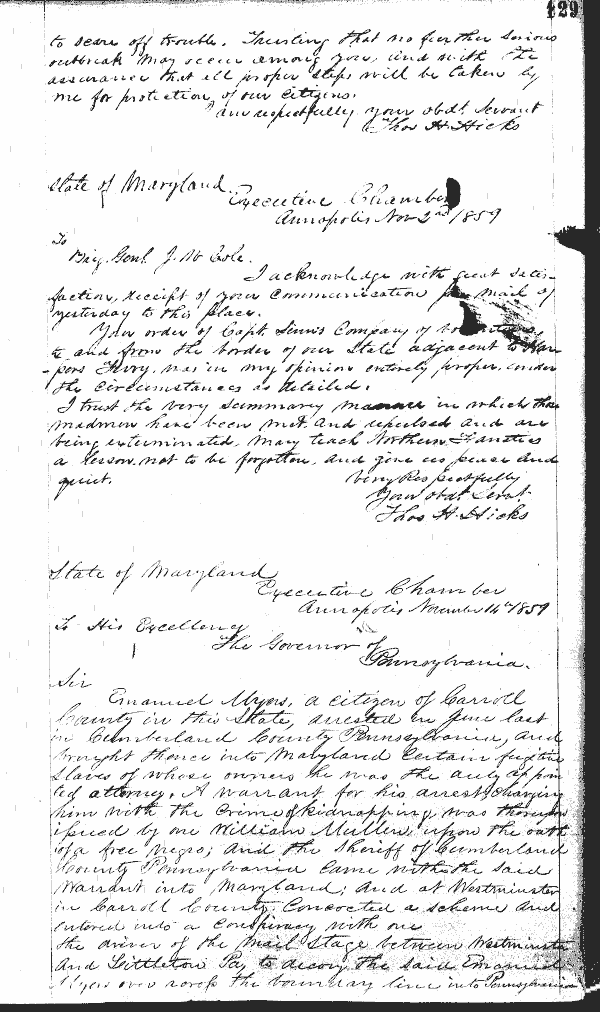 129
to scare off trouble. Trusting that no further serious
outbreak may occur among you, and with the
assurance that all proper steps will be taken by
me for protection of our citizens.
I am respectfully your obdt. servant
Thos H. Hicks
State of Maryland
Executive Chamber
Annapolis Nov 2nd 1859
To
Brig. Genl. J. W
I acknowledge with great satis-
faction, receipt of your communication per mail of
yesterday to this place.
Your order of Capt. Company of
to and from the border of our State adjacent to Har
-pers Ferry, was in my opinion entirely proper, under
the circumstances as detailed.
I trust the very summary manner in which those
madmen have been met, and repulsed and are
being exterminated, may teach Northern Fanatics
a lesson, not to be forgotten, and give us peace and
quiet.
Very Respectfully
Your obdt Servt.
Thos H. Hicks
State of Maryland
Executive Chamber
Annapolis November 14th 1859
To His Excellency
The Governor of
Pennsylvania.
Sir
Emanuel Myers, a citizen of Carroll
County in this State, arrested in June last
in Cumberland County Pennsylvania, and
brought thence into Maryland certain fugitive
slaves of whose owners he was the duly appoin
ted attorney. A warrant for his arrest, charging
him with the crime of kidnapping, was thereupon
issued by one William Mullen, upon the oath
of a free negro; and the Sheriff of Cumberland
County Pennsylvania came with the said
warrant into Maryland; and at Westminster
in Carroll County, concocted a scheme and
entered into a conspiracy with one
the driver of the Mail Stage between Westminster
and Littleton Pa, to decoy the said Emanuel
Myers over across the boundary line into Pennsylvania